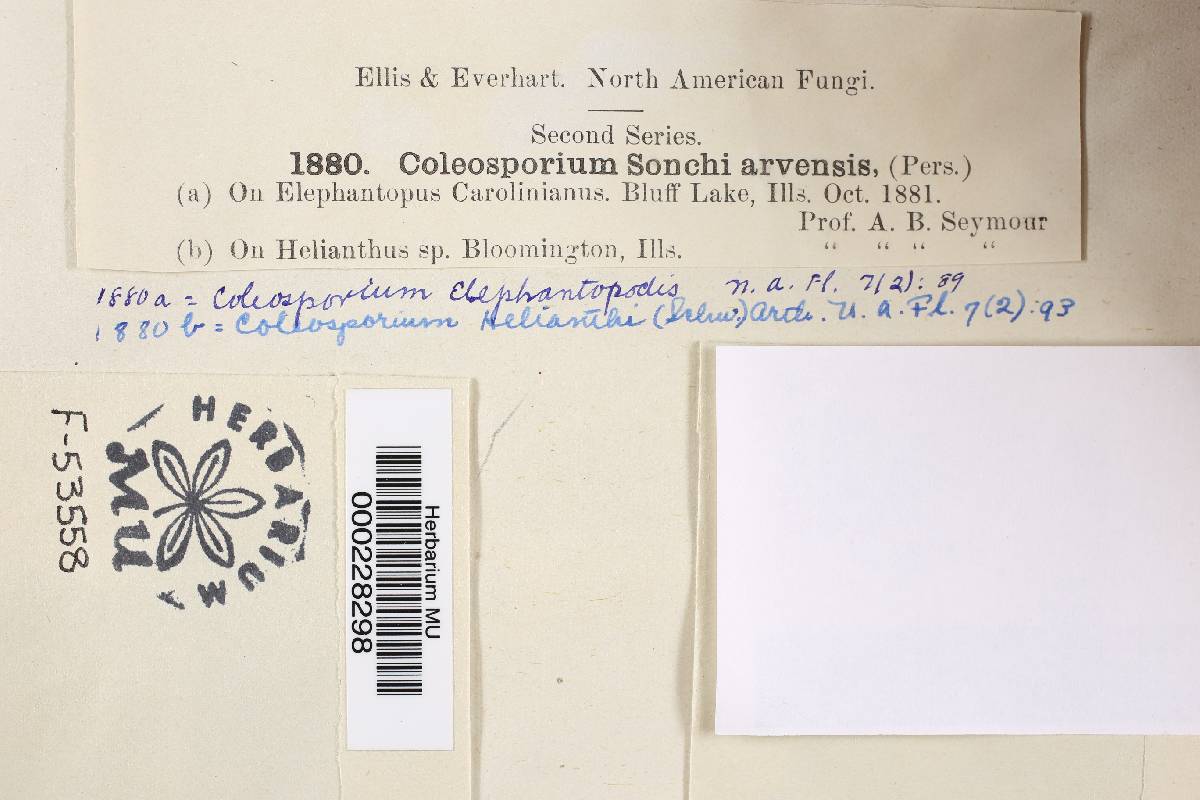 Ellis & Everhart. North American Fungi.
Second Series.
1880. Coleosporium Sonchi arvensis, (Pers.)
(a) On Elephantopus Carolinianus. Bluff Lake, Ills. Oct. 1881.
Prof. A. B. Seymour
(b) On Helianthus sp. Bloomington, Ills. “ “ “ “
1880a = Coleosporium Elephantopodis n. a. Fl. 7(2): 89
1880 b = Coleosporium Helianthi (Schw.) Arth. n. a. Fl. 7(2). 93
F-53558
HERBARIUM
MU
0000228298
Herbarium MU